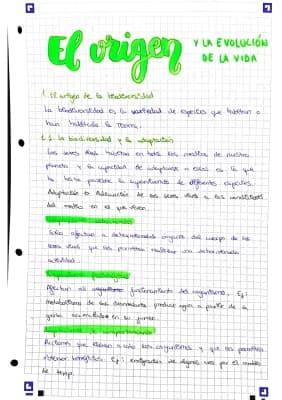 El origen
Y LA EVOLUCIÓN
DE LA VIDA
1. El origen de la biodiversidad
La biodiversidad es la variedad de especies que habitan o
han habitado la Tierra.
1.1 La biodiversidad y la adaptación
Los seres vivos habitan en todos los medios de nuestro
planeta y la capacidad de adaptarse a ellos es la que
ha hecho posible la supervivencia de diferentes especies.
Adaptación: Adecuación de los seres vivos a las condiciones
del medio en el que viven.
Sólo afectan a determinados órganos del cuerpo de los
seres vivos que les permiten realizar una determinada
actividad.
Afectan al funcionamiento del organismo. Ej:
metabolismo de los dromedarios produce agua a partir de la
grasa acumulada en su joroba.
Acciones que llevan a cabo los organismos y que les permiten
obtener beneficios. Ej: aves por el cambio
de temp.